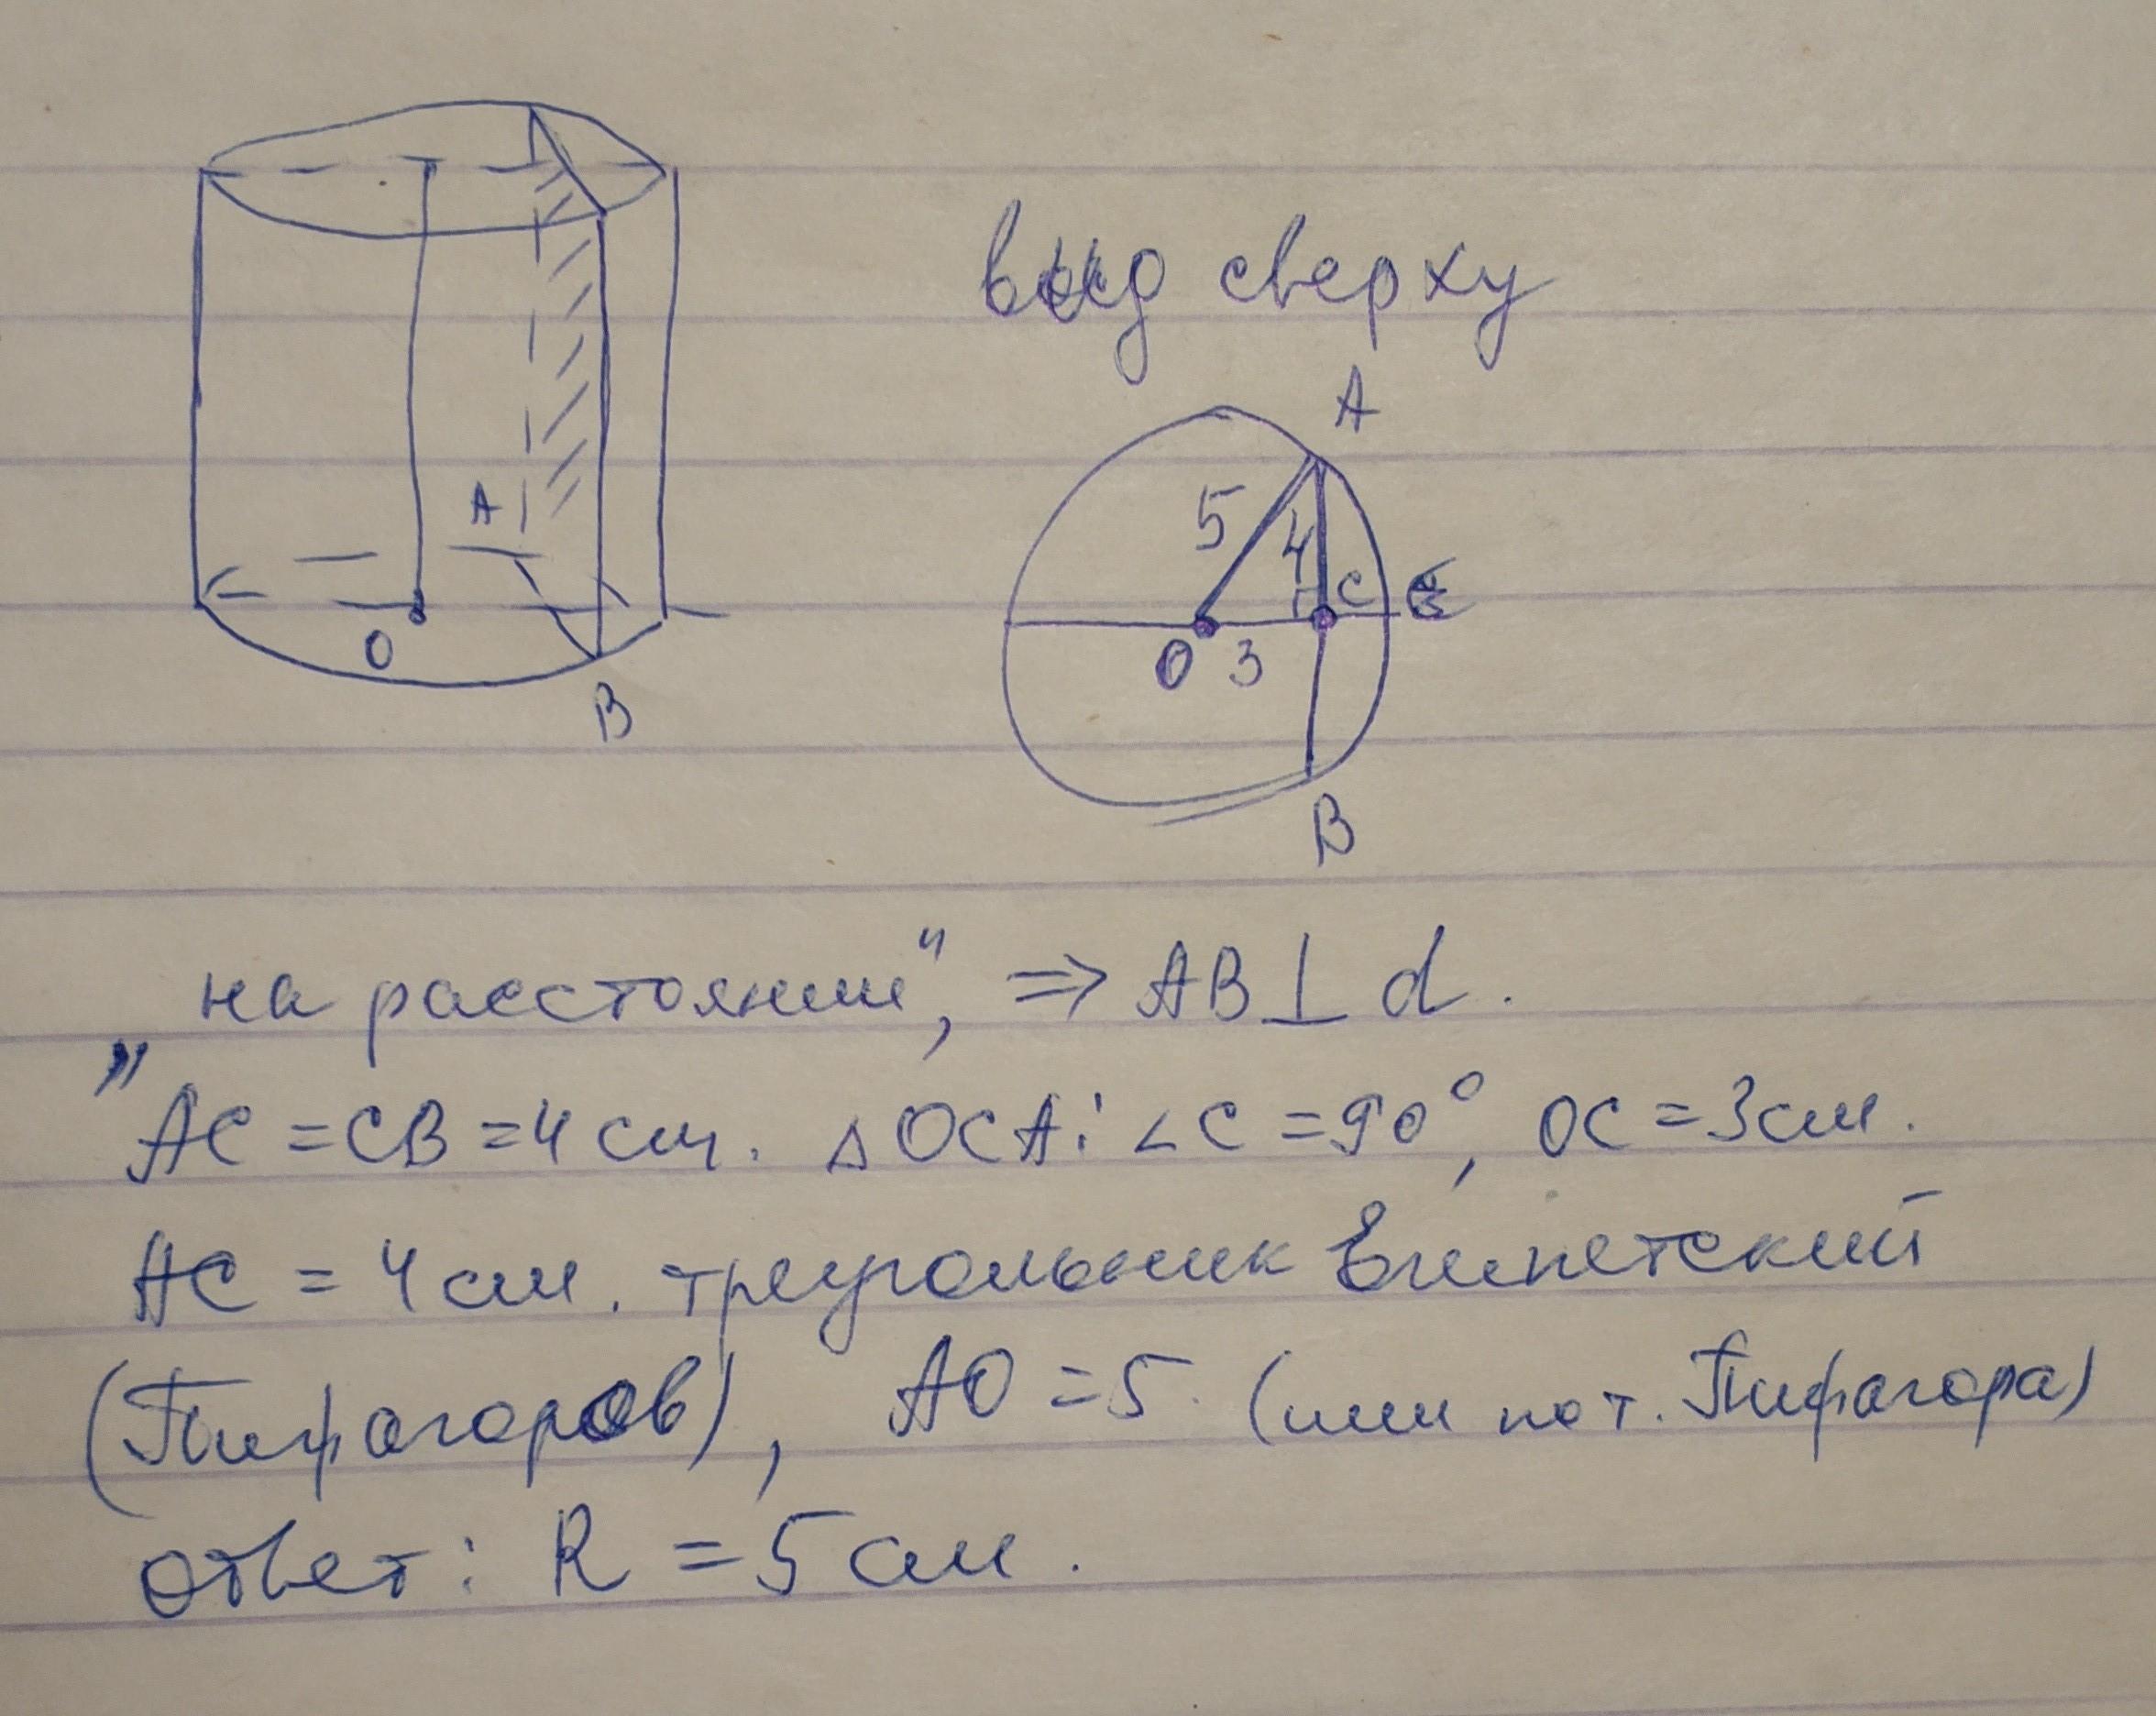 вид сверху
A
5
4
C
O 3
B
A
O
B
„на расстоянии“, ⇒ AB ⊥ d.
AC = CB = 4 см. △ OCA: ∠C = 90°, OC = 3 см.
AC = 4 см. треугольник Египетский
(Пифагоров), AO = 5. (или по т. Пифагора)
ответ: R = 5 см.